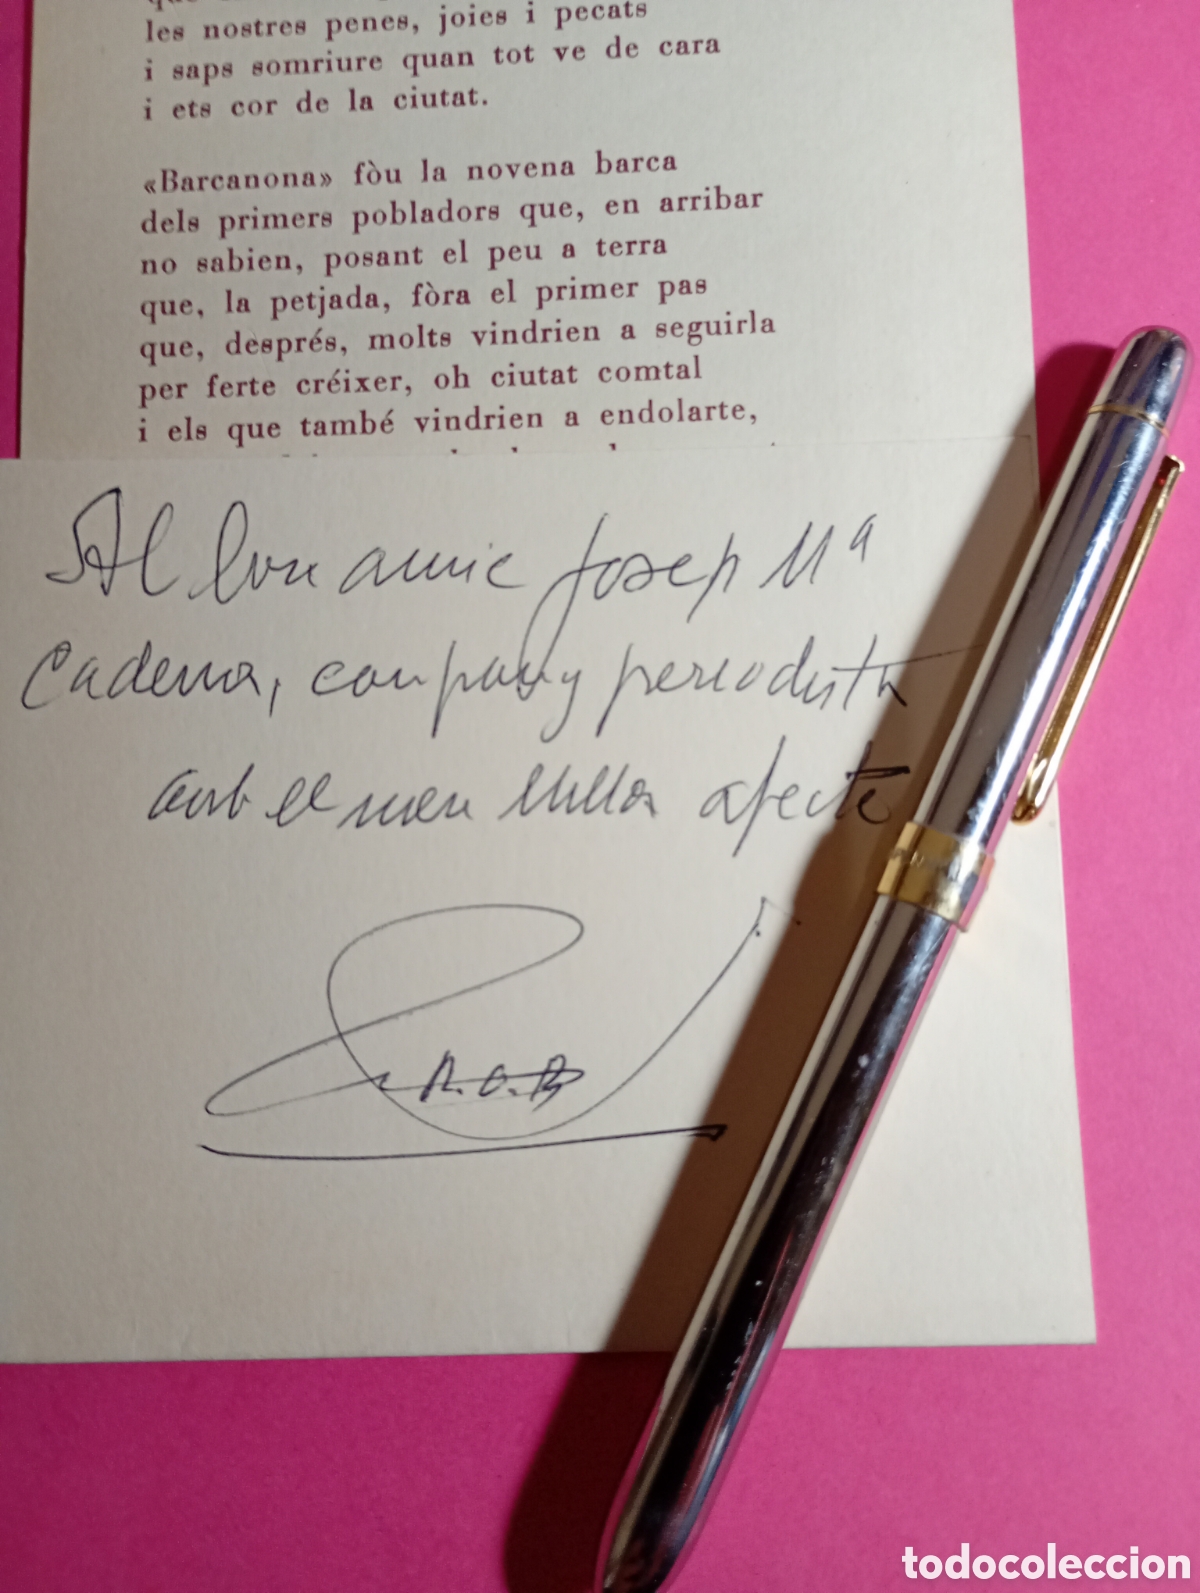 les nostres penes, joies i pecats
i saps somriure quan tot ve de cara
i ets cor de la ciutat.
«Barcanona» fòu la novena barca
dels primers pobladors que, en arribar
no sabien, posant el peu a terra
que, la petjada, fòra el primer pas
que, després, molts vindrien a seguirla
per ferte créixer, oh ciutat comtal
i els que també vindrien a endolarte,
Al bon amic Josep Mª
Cadena, company periodista
amb el meu millor afecte
todocoleccion